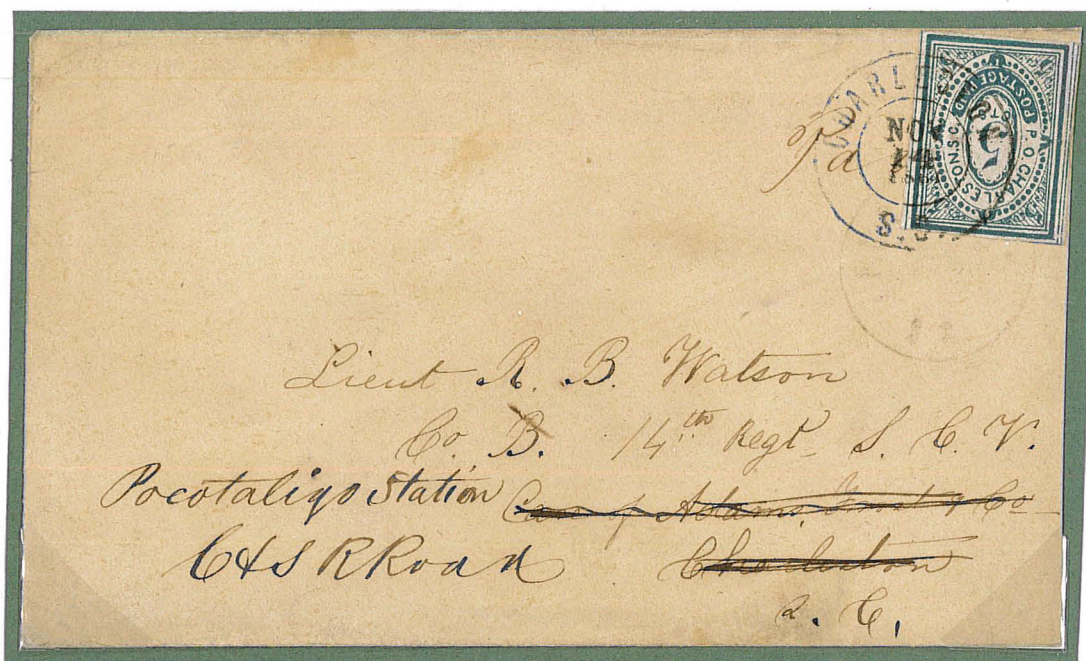 CHARLESTON
NOV
S.C.
P.O. CHARLESTON S.C.
POSTAGE PAID
5
CTS
Lieut R. B. Watson
Co. B. 14th Regt S. C. V.
Pocotaligo Station Care of Adams, Frost & Co
C & S R Road Charleston
S. C.